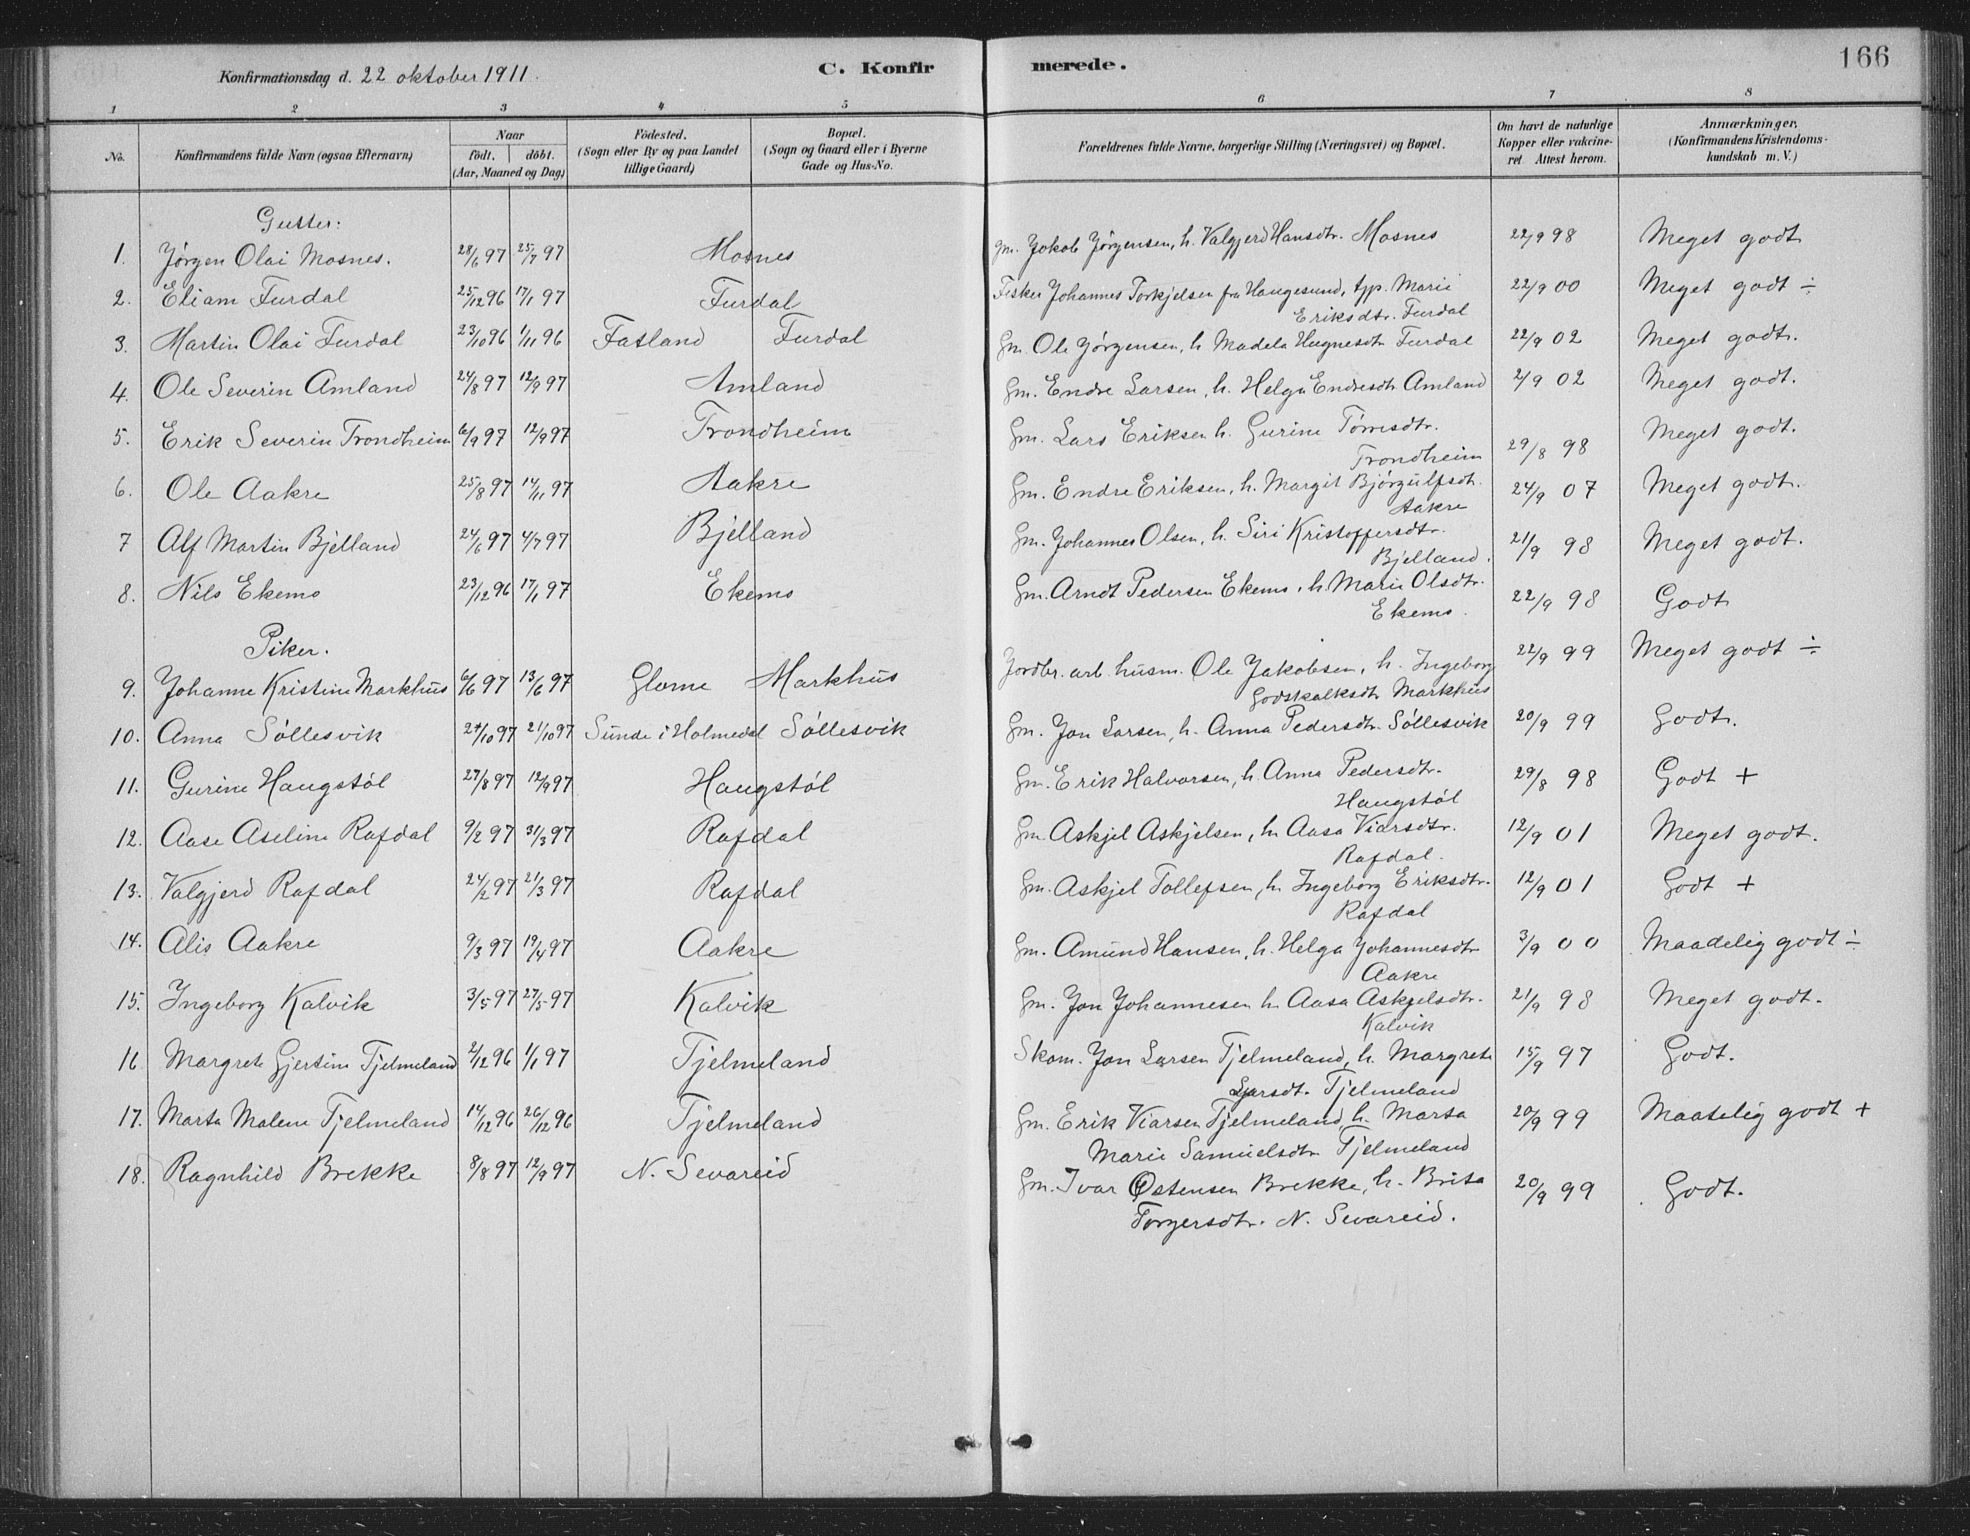 Konfirmationsdag d. 22 oktober 1911. C. Konfirmerede. 166
1 2 3 4 5 6 7 8
No. Konfirmandens fulde Navn (ogsaa Efternavn) Naar født. døbt. (Aar, Maaned og Dag) Fødested. (Sogn eller By og paa Landet tillige Gaard) Bopæl. (Sogn og Gaard eller i Byerne Gade og Hus-No. Forældrenes fulde Navne, borgerlige Stilling (Næringsvei) og Bopæl. Om havt de naturlige Kopper eller vakcineret Attest herom. Anmærkninger. (Konfirmandens Kristendomskundskab m. V.)
Gutter:
1. Jørgen Olai Mosnes. 28/6 97 25/7 97 Mosnes Gm. Jakob Jørgensen, h. Valgjerd Hansdtr. Mosnes 22/9 98 Meget godt
2. Eliam Furdal 25/12 96 17/1 97 Furdal Fisker Johannes Torkjelsen fra Haugesund, tjp. Marie 22/9 00 Meget godt ÷
Eriksdtr. Furdal
3. Martin Olai Furdal 23/10 96 1/11 96 Fatland Furdal Gm. Ole Jørgensen, h. Madela Hugnesdtr Furdal 22/9 02 Meget godt.
4. Ole Severin Amland 24/8 97 12/9 97 Amland Gm. Endre Larsen, h. Helga Endresdtr Amland 2/9 02 Meget godt.
5. Erik Severin Trondheim 6/9 97 12/9 97 Trondheim Gm. Lars Eriksen h. Gurine Tørresdtr. 29/8 98 Meget godt.
Trondheim
6. Ole Aakre 25/8 97 14/11 97 Aakre Gm. Endre Eriksen, h. Margit Bjørgulfsdt. 24/9 07 Meget godt.
Aakre
7 Alf Martin Bjelland 24/6 97 4/7 97 Bjelland Gm. Johannes Olsen, h. Siri Kristoffersdtr. 21/9 98 Meget godt.
Bjelland.
8. Nils Ekemo 23/12 96 17/1 97 Ekemo Gm. Arndt Pedersen Ekemo, h. Marie Olsdtr. 22/9 98 Godt
Ekemo.
Piker.
9. Johanne Kristine Markhus 6/6 97 13/6 97 Glome Markhus Jordbr. arb. husm. Ole Jakobsen, h. Ingeborg 22/9 99 Meget godt ÷
Godskalksdtr Markhus
10. Anna Søllesvik 2/10 97 21/10 97 Sunde i Holmedal Søllesvik Gm. Jon Larsen, h. Anna Pedersdtr. Søllesvik 20/9 99 Godt.
11. Gurine Haugstøl 27/8 97 12/9 97 Haugstøl Gm. Erik Halvorsen, h. Anna Pedersdtr. 29/8 98 Godt +
Haugstøl
12. Aase Aseline Rafdal 9/2 97 31/3 97 Rafdal Gm. Askjel Askjelsen, h. Aasa Viarsdtr. 12/9 01 Meget godt.
Rafdal.
13. Valgjerd Rafdal 24/2 97 21/3 97 Rafdal Gm. Askjel Tollefsen, h. Ingeborg Eriksdtr. 12/9 01 Godt +
Rafdal
14. Alis Aakre 9/3 97 19/4 97 Aakre Gm. Amund Hansen, h. Helga Johannesdtr 3/9 00 Maadelig godt ÷
Aakre
15. Ingeborg Kalvik 3/5 97 27/5 97 Kalvik Gm. Jon Johannesen h. Aasa Askjelsdtr. 21/9 98 Meget godt.
Kalvik
16 Margrete Gjertine Tjelmeland 2/12 96 1/1 97 Tjelmeland Skom. Jon Larsen Tjelmeland, h. Margrete 15/9 97 Godt.
Larsdt. Tjelmeland
17. Marta Malene Tjelmeland 14/12 96 26/12 96 Tjelmeland Gm. Erik Viarsen Tjelmeland, h. Marta 20/9 99 Maatelig godt +
Marie Samuelsdtr Tjelmeland
18. Ragnhild Brekke 8/8 97 12/9 97 N. Sevareid Gm. Ivar Østensen Brekke, h. Brita 20/9 99 Godt.
Torgersdtr. N. Sevareid.